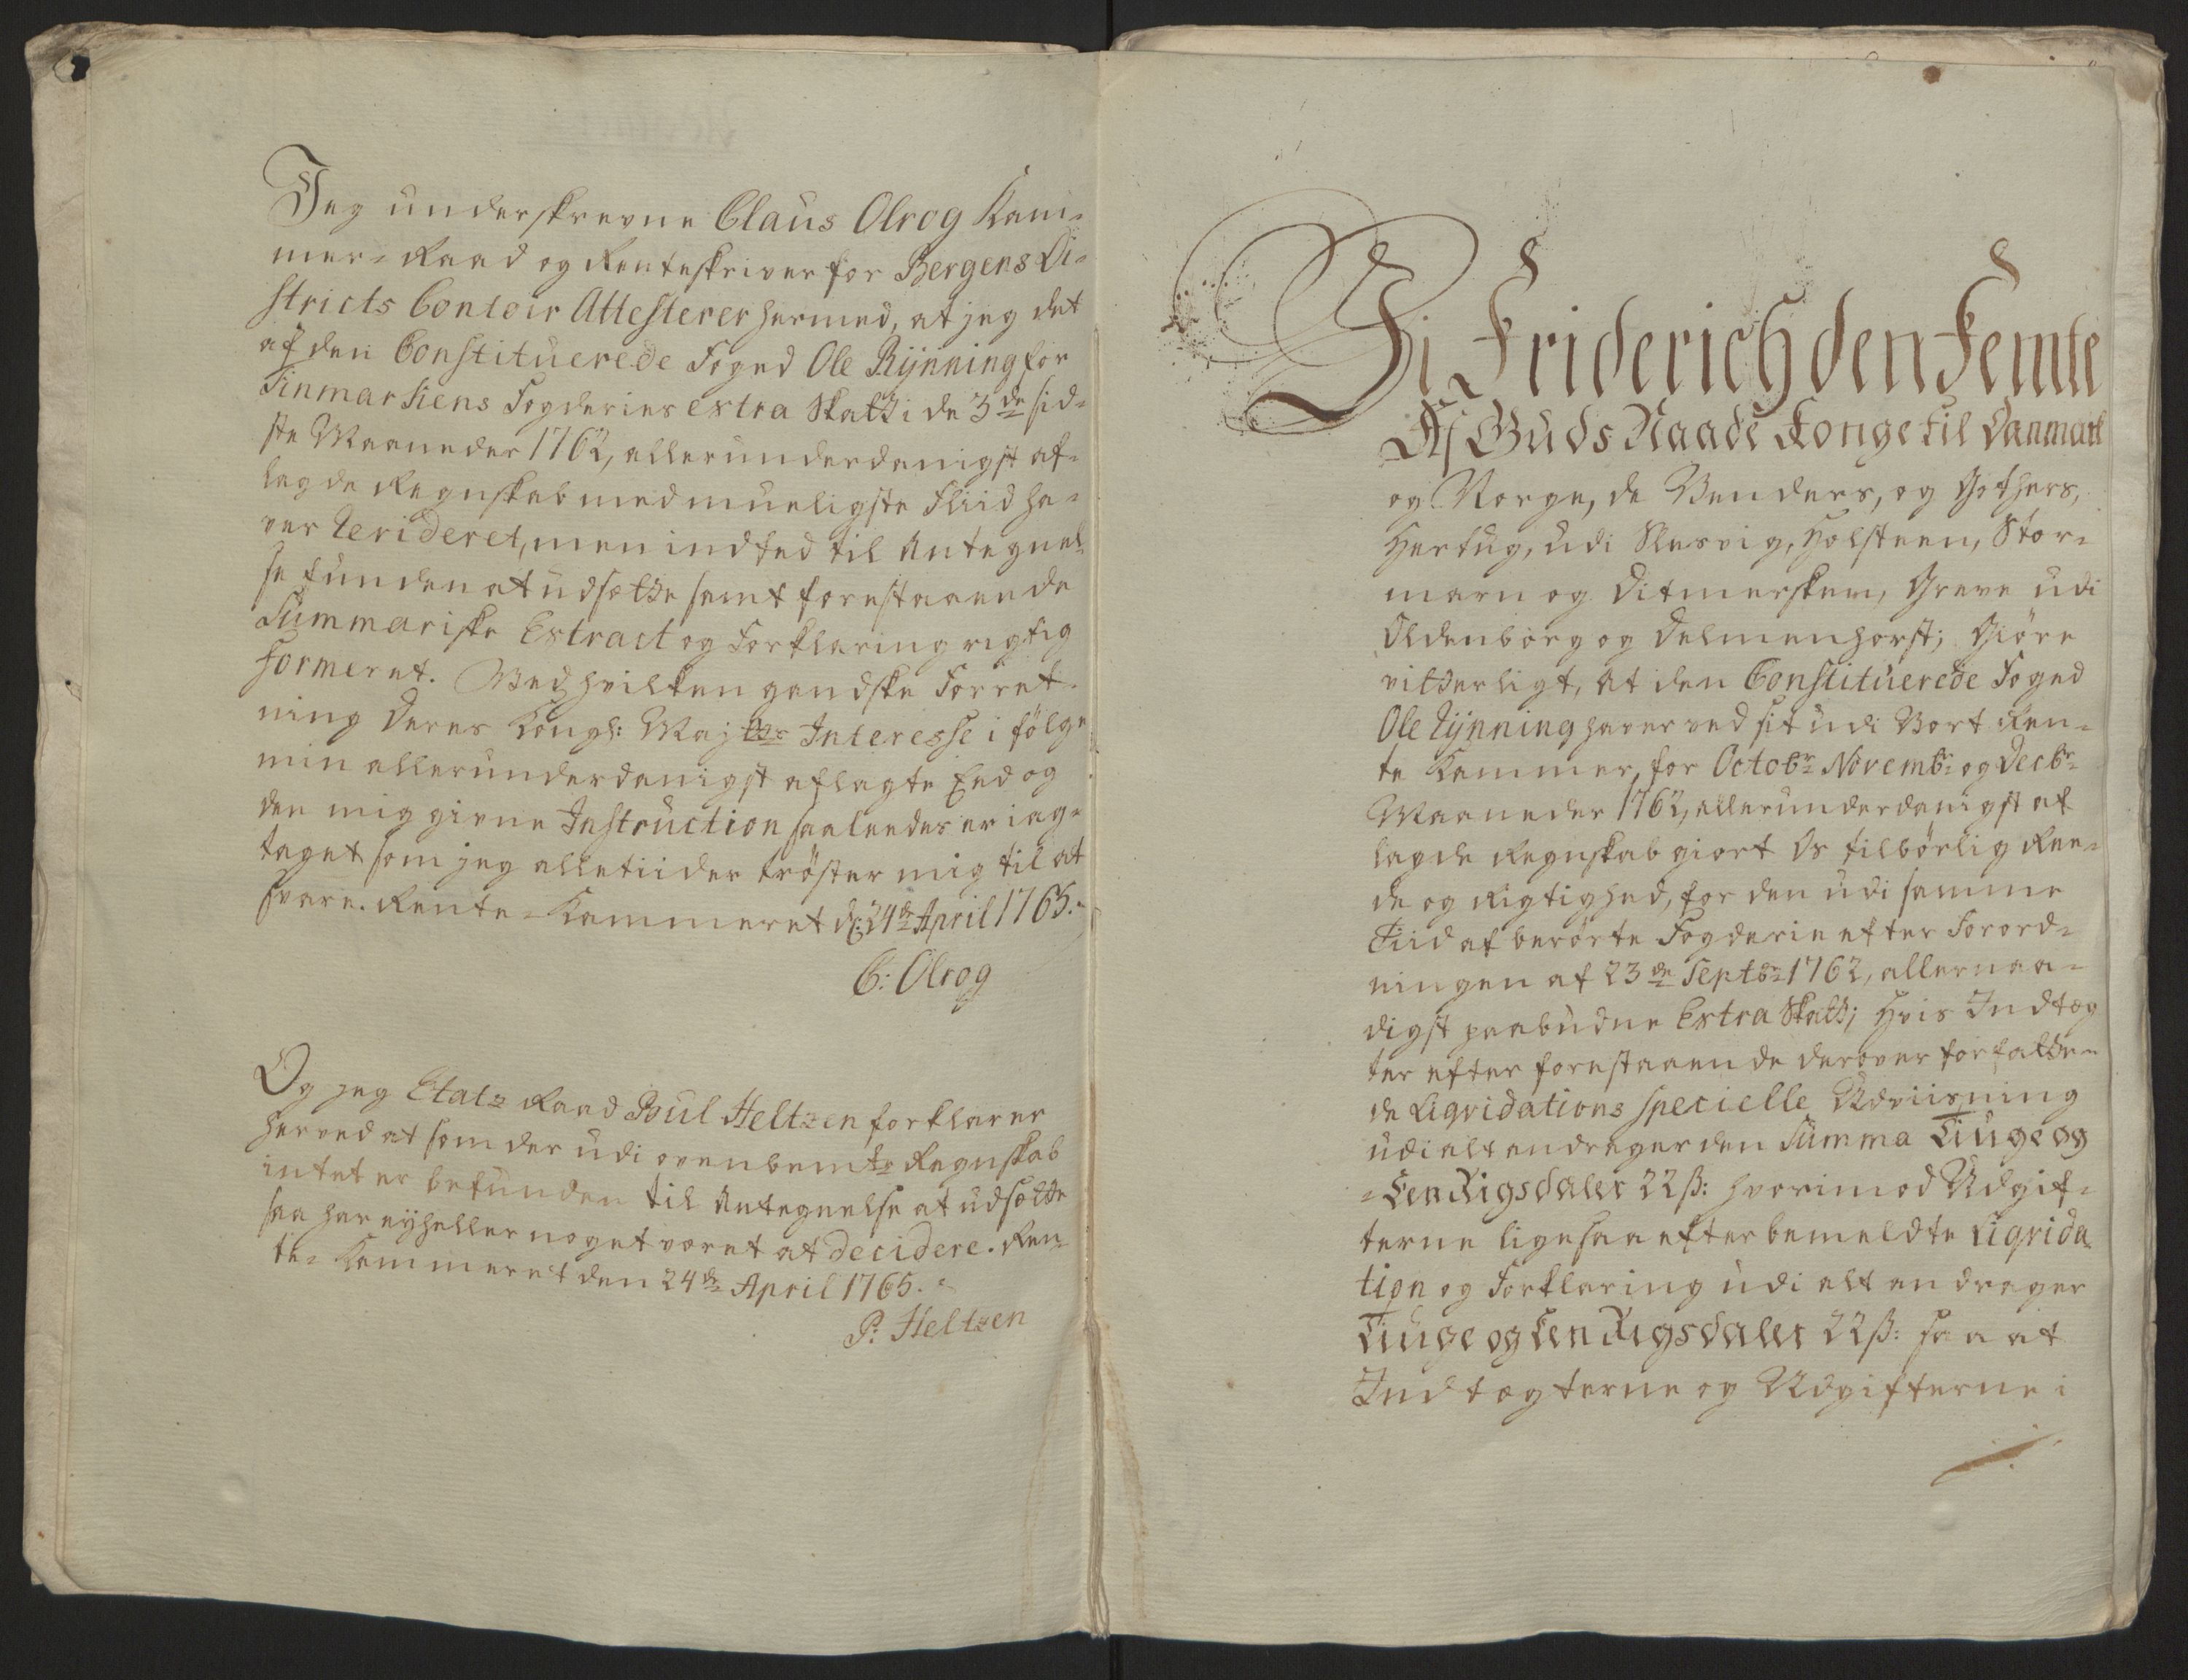 Jeg underskrevne Claus Olrog Kam-
mer-Raad og Renteskriver for Bergens Di-
stricts Contoir Attesterer hermed, at jeg det
af den Constituerede Foged Ole Rijnning for
Finmarkens Fogderies extra Skatt i de 3de sid-
ste Maaneder 1762, allerunderdanigst af-
lagde Regnskab med mueligste Fliid ha-
ver revideret, men indted til Antegnel-
se funden at udsætte samt forestaaende
Summariske Extract og Forklaring rigtig
formeret. Ved hvilken gandske Forret-
ning Deres Kongl: Maj:tts Interesse i følge
min allerunderdanigst aflagte Eed og
den mig givne Instruction saaleedes er iag-
taget som jeg alletiider trøster mig til at
svare. Rente-Kammeret d: 24de April 1765.
C: Olrog
Og jeg Etatz Raad Poul Heltzen forklarer
herved at som der udi ovenbemte Regnskab
intet er befunden til Antegnelse at udsætte
saa har eyheller noget været at decidere. Ren-
te-Kammeret den 24de April 1765.
P: Heltzen
Vi Friderich den Femte
Af Guds Naade Konge til Danmark
og Norge, de Venders, og Gothers,
Hertug, udi Slesvig, Holsteen, Stor-
marn og Ditmersken, Greve udi
Oldenborg og Delmenhorst; Giøre
vitterligt, at den Constituerede Foged
Ole Rijnning haver ved sit udi Vort Ren-
te Kammer, for Octobr Novembr og Decbr
Maaneder 1762, allerunderdanigst af
lagde Regnskab giort Os tilbørlig Ree-
de og Rigtighed, for den udi samme
Tiid af berørte Fogderie efter Forord-
ningen af 23de Septbr 1762, allernaa-
digst paabudne Extra Skatt; Hvis Indtæg
ter efter forestaaende derover forfatte-
de Liqvidations specielle Udviisning
udi alt andrager den Summa Tiuge og
-Een Rigsdaler 22 ß: hvorimod Udgif-
terne ligesaa efter bemeldte Liqvida
tion og Forklaring udi alt andrager
Tiuge og Een Rigsdaler 22 ß: saa at
Indtægterne og Udgifterne i